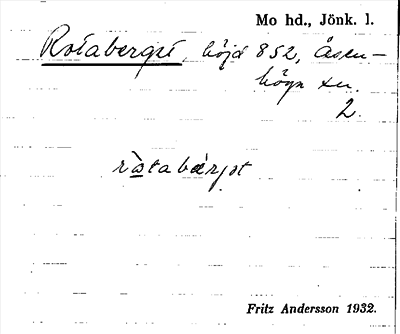 Mo hd., Jönk. l.
Rotaberget, höjd 852, Åsen-
höga sn.
2.
ròtabærjət
Fritz Andersson 1932.